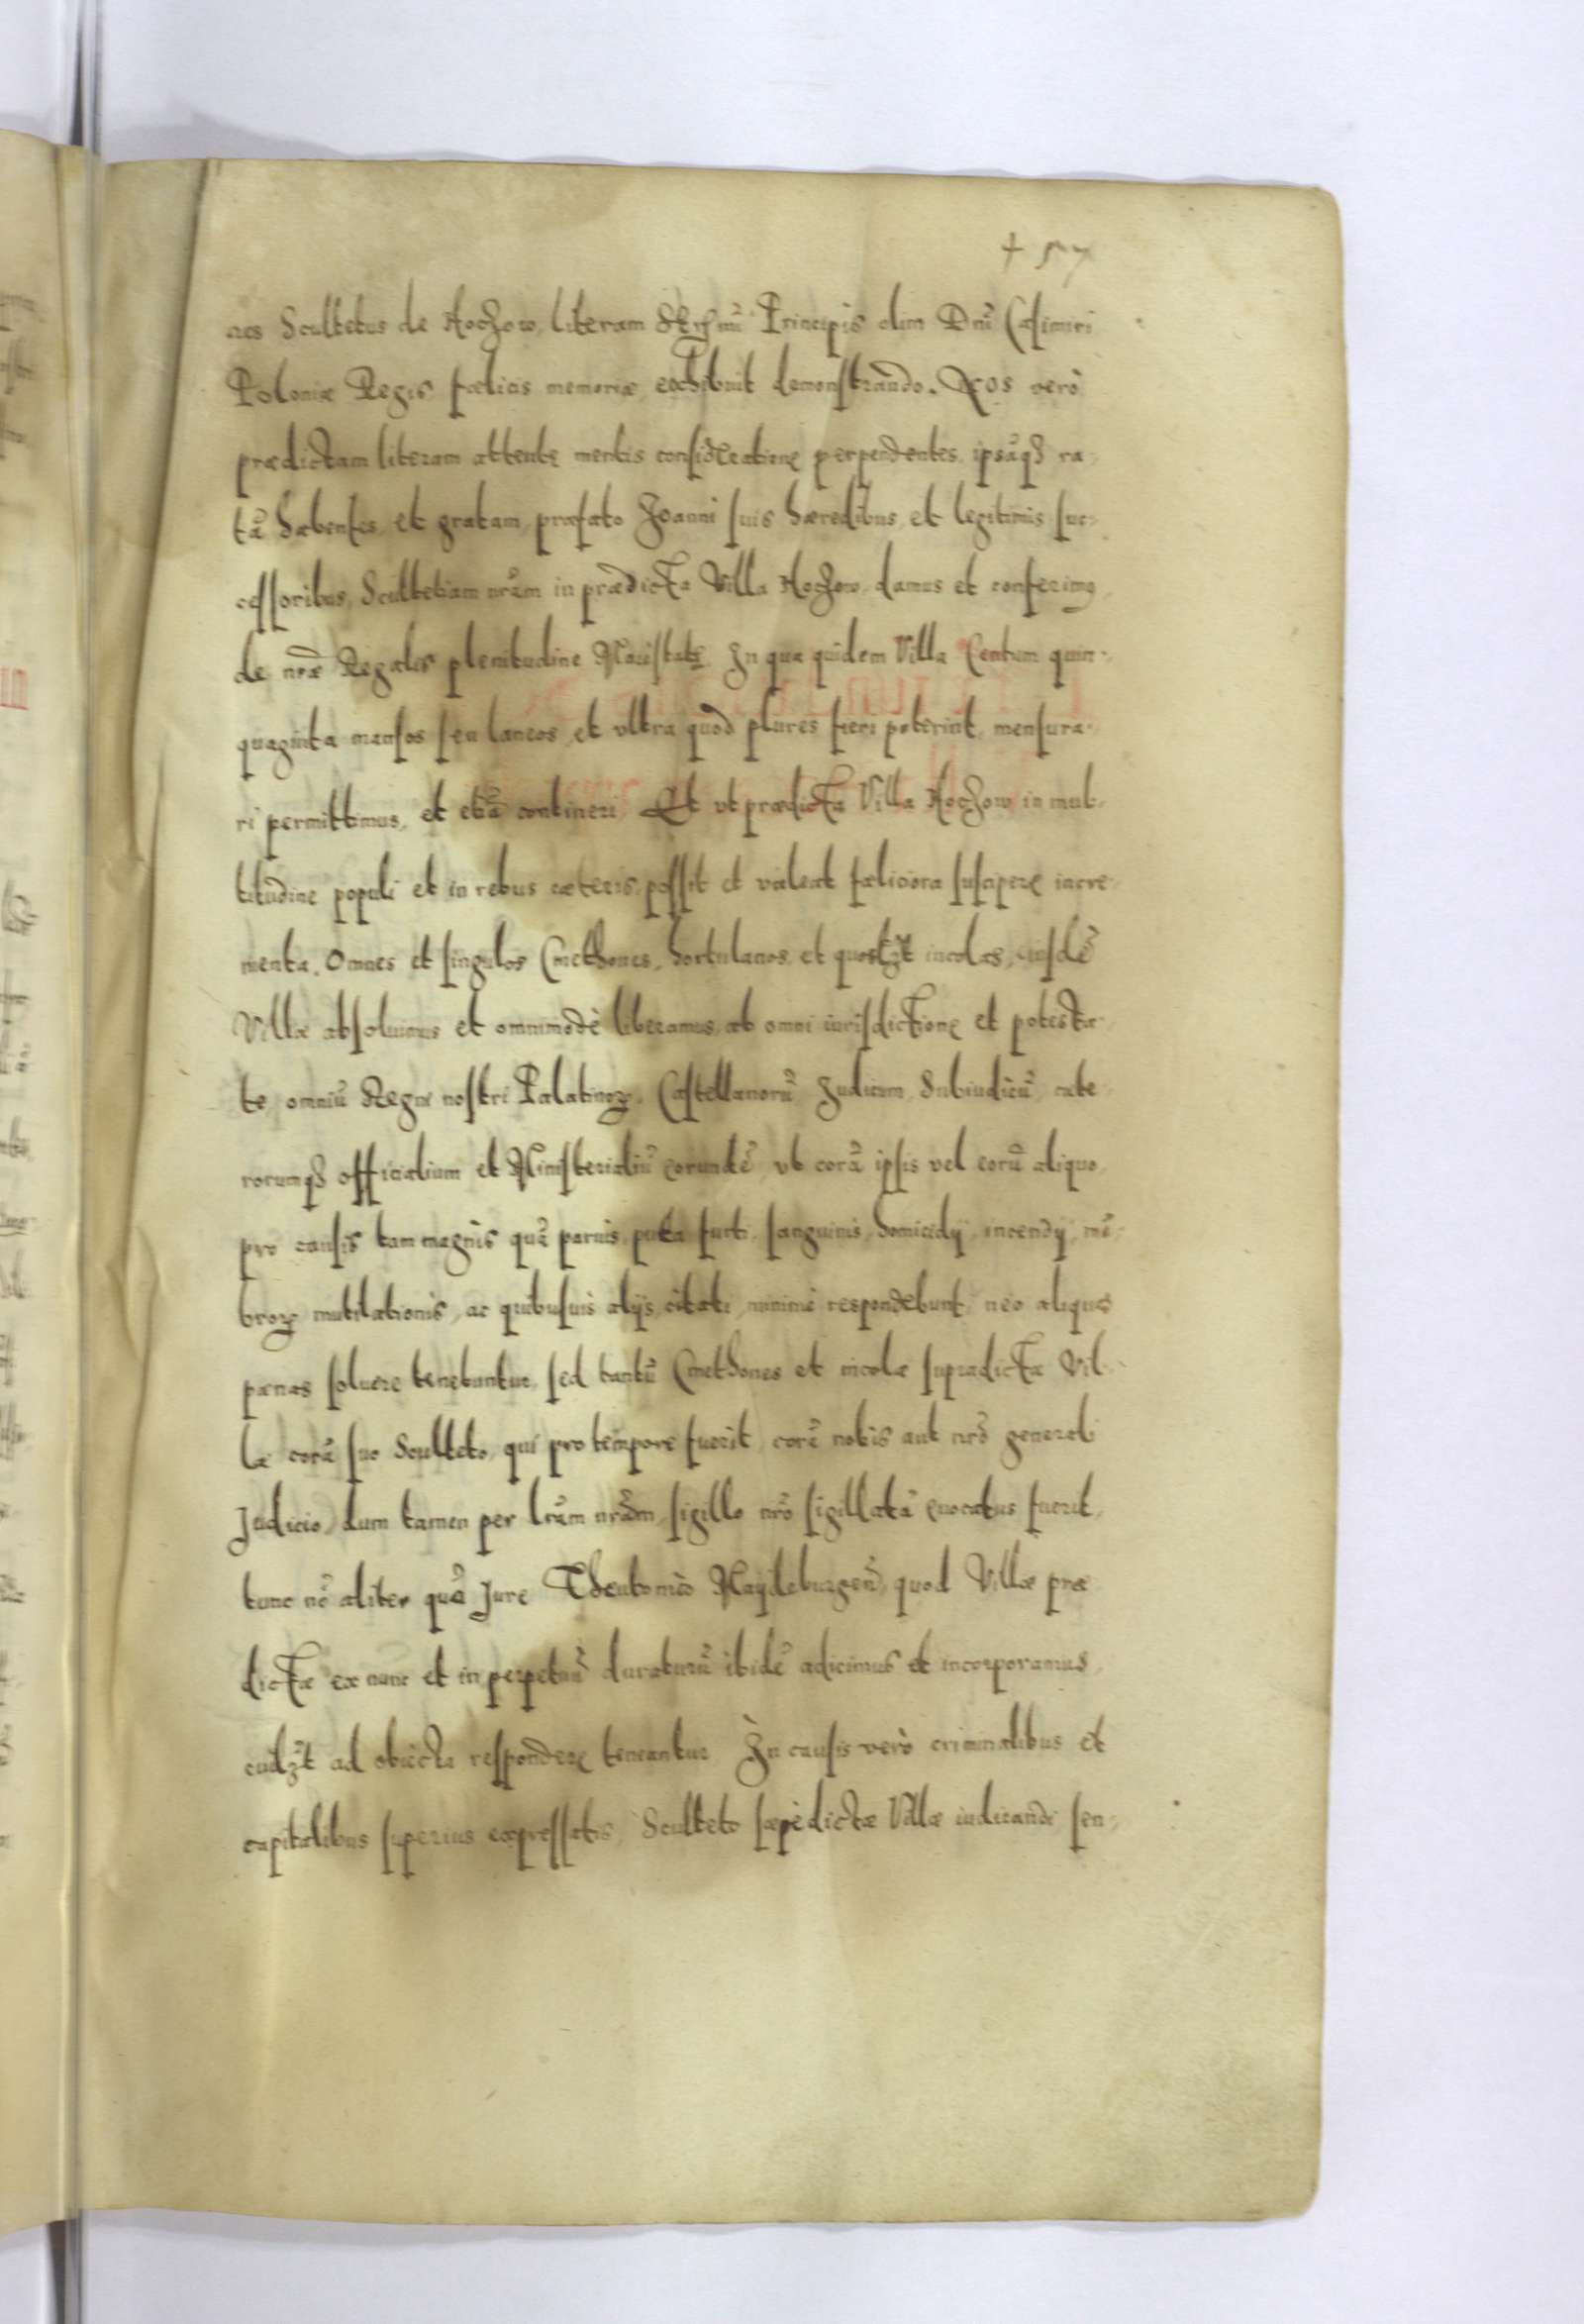 + 57
nes Scultetus de Kochow, literam Serm̃i Principis olim Dñi Casimiri
Poloniæ Regis fælicis memoriæ, exhibuit demonstrando. Nos verò
prædictam literam attente mentis consideratione perpendentes, ipsãq₃ ra-
tã habentes, et gratam, præfato Joanni suis hæredibus, et legitimis suc-
cessoribus, Scultetiam nrãm in prædicta Villa Kochow, damus et conferimꝰ
de nrãe Regalis plenitudine Maiestatis. In qua quidem Villa Centum quin-
quaginta mansos seu laneos, et vltra quod plures fieri poterint, mensura-
ri permittimus, et etiã contineri. Et vt prædicta Villa Kochow in mul-
titudine populi et in rebus cæteris, possit et valeat fæliciora suscipere incre-
menta. Omnes et singulos Cmethones, hortulanos, et quoslꝫt incolas, eiusdẽ
Villæ absoluimus et omnimodè liberamus, ab omni iurisdictione et potesta-
te, omniũ Regni nostri Palatinoꝝ, Castellanorũ, Judicum, Subiudicũ, cæte-
rorumq₃ officialium et Ministerialiũ eorundẽ, vt corã ipsis vel eorũ aliquo,
pro causis tam magnis quã paruis, puta furti, sanguinis, homicidij, incendij, mẽ-
broꝝ mutilationis, ac quibusuis alijs, citati, minimè respondebunt, nec aliquas
pænas soluere tenebuntur, sed tantũ Cmethones et incolæ supradictæ Vil-
læ corã suo Sculteto, qui pro tempore fuerit, corã nobis aut nrõ generali
Judicio, dum tamen per lrãm nrãm, sigillo nrõ sigillatã euocatus fuerit,
tunc nõ aliter quã Jure Theutonico Maydeburgeñ, quod Villæ præ-
dictæ ex nunc et in perpetuũ duraturũ ibidẽ adicimus et incorporamus,
cuilꝫt ad obiecta respondere teneantur. In causis verò criminalibus et
capitalibus superius expressatis, Sculteto sæpèdictæ Villæ iudicandi sen-